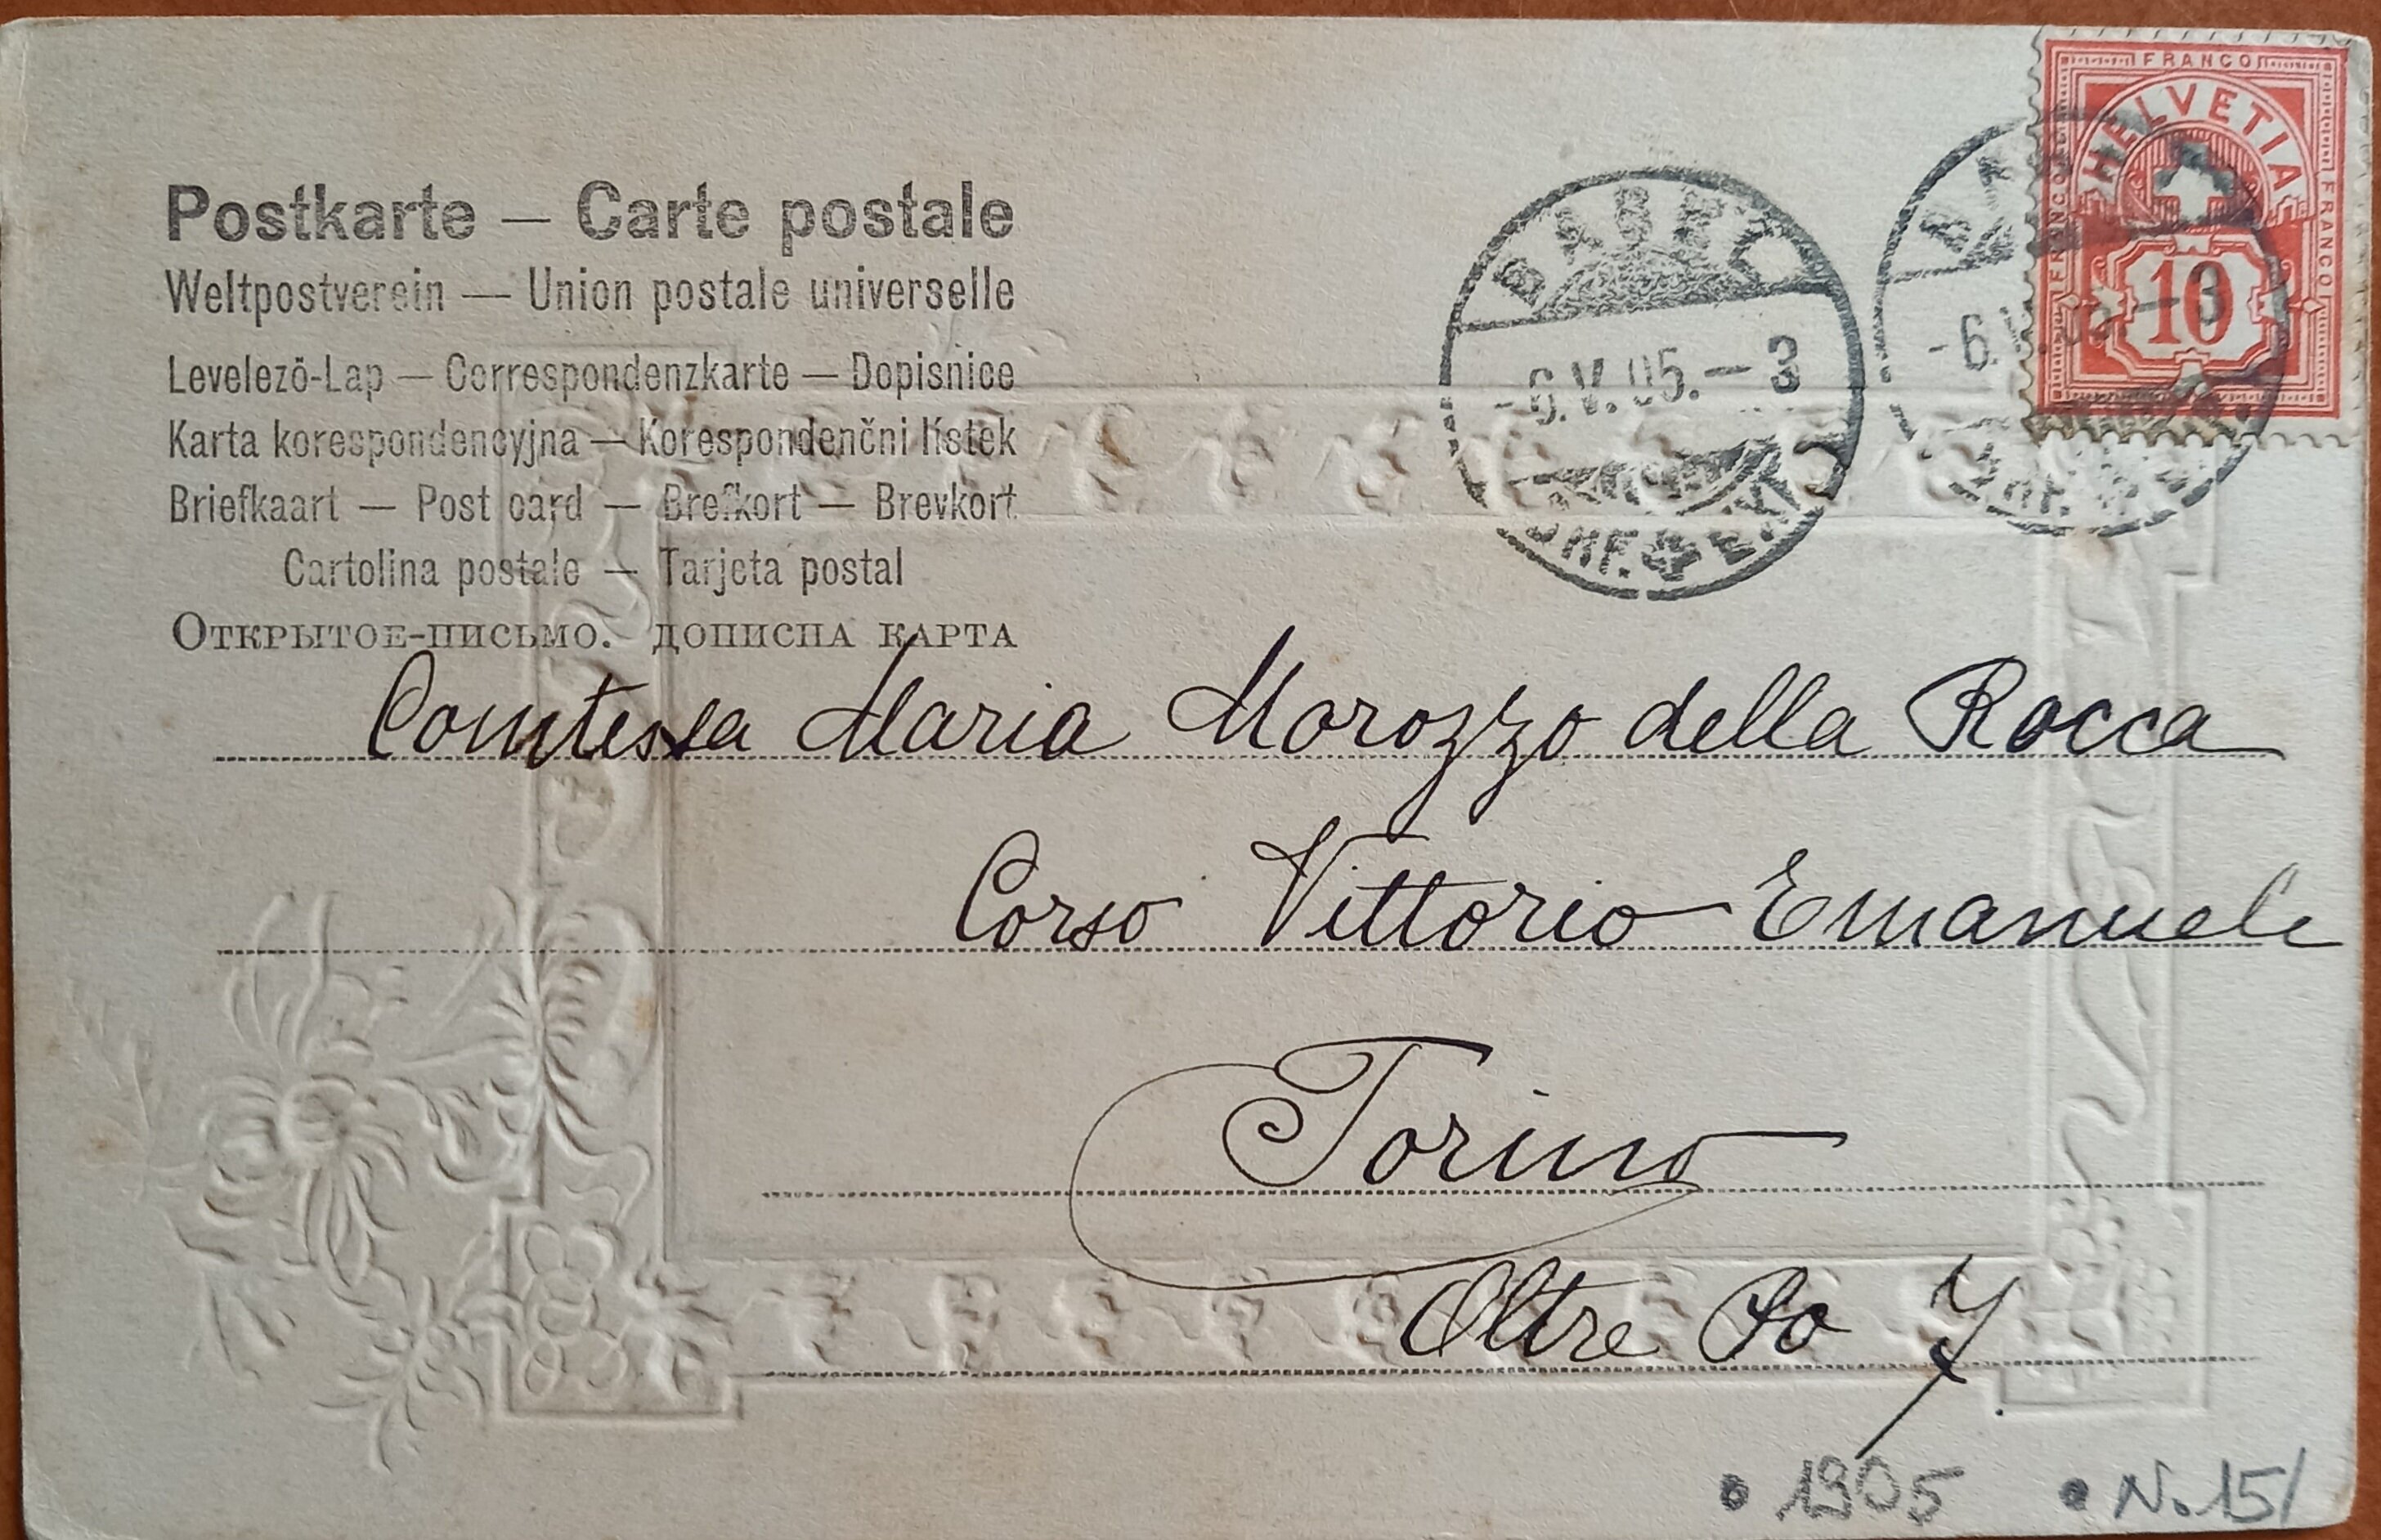 Postkarte — Carte postale
Weltpostverein — Union postale universelle
Levelezö-Lap — Correspondenzkarte — Dopisnice
Karta korespondencyjna — Korespondenčni lístek
Briefkaart — Post card — Brefkort — Brevkort
Cartolina postale — Tarjeta postal
Открытое-письмо. дописна карта
FRANCO
HELVETIA
FRANCO
FRANCO
10
BASEL
-6.V.05.-3
BRF.
-6. -3
Comtessa Maria Morozzo della Rocca
Corso Vittorio Emanuele
Torino
Oltre Po 7
• 1905 • N. 15/